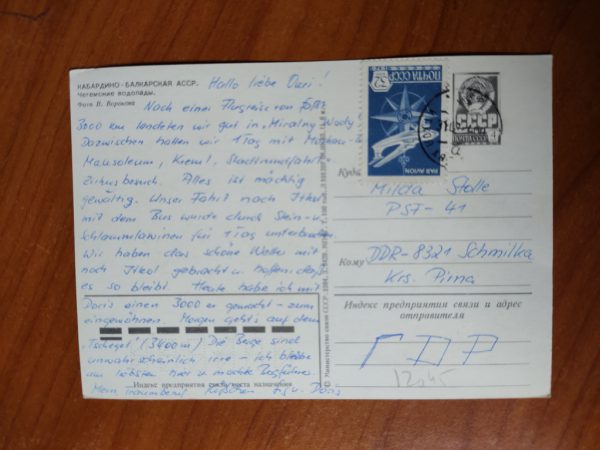 КАБАРДИНО-БАЛКАРСКАЯ АССР.
Чегемские водопады.
Фото В. Воронова
Hallo liebe
Nach einer Flugreise von
3000 km landeten wir gut in „Miralny Wody
Dazwischen hatten wir 1 Tag mit Moskau -
Mausoleum, Kreml, Stadtrundfahrt,
Zirkusbesuch. Alles ist mächtig
gewaltig. Unser Fahrt nach Itkol
mit dem Bus wurde durch Stein- u.
Schlammlawinen für 1 Tag unterbrochen
Wir haben das schöne Wetter mit
nach Itkol gebracht u. hoffen, daß
es so bleibt. Heute habe ich mit
Doris einen 3000 er gemacht - zum
eingewöhnen. Morgen geht's auf den
"Tscheget" (3400 m) Die Berge sind
unwahrscheinlich irre - ich bleibe
am liebsten hier u. mache Bergführer.
Mein Traumberuf Küßchen u. Doris
Индекс предприятия связи места назначения
© Министерство связи СССР.
32
ПОЧТА СССР
PAR AVION
СССР
ПОЧТА СССР
Куда
Milda Stolle
PSF - 41
Кому
DDR-8321 Schmilka
Krs. Pirna
Индекс предприятия связи и адрес
отправителя
ГДР